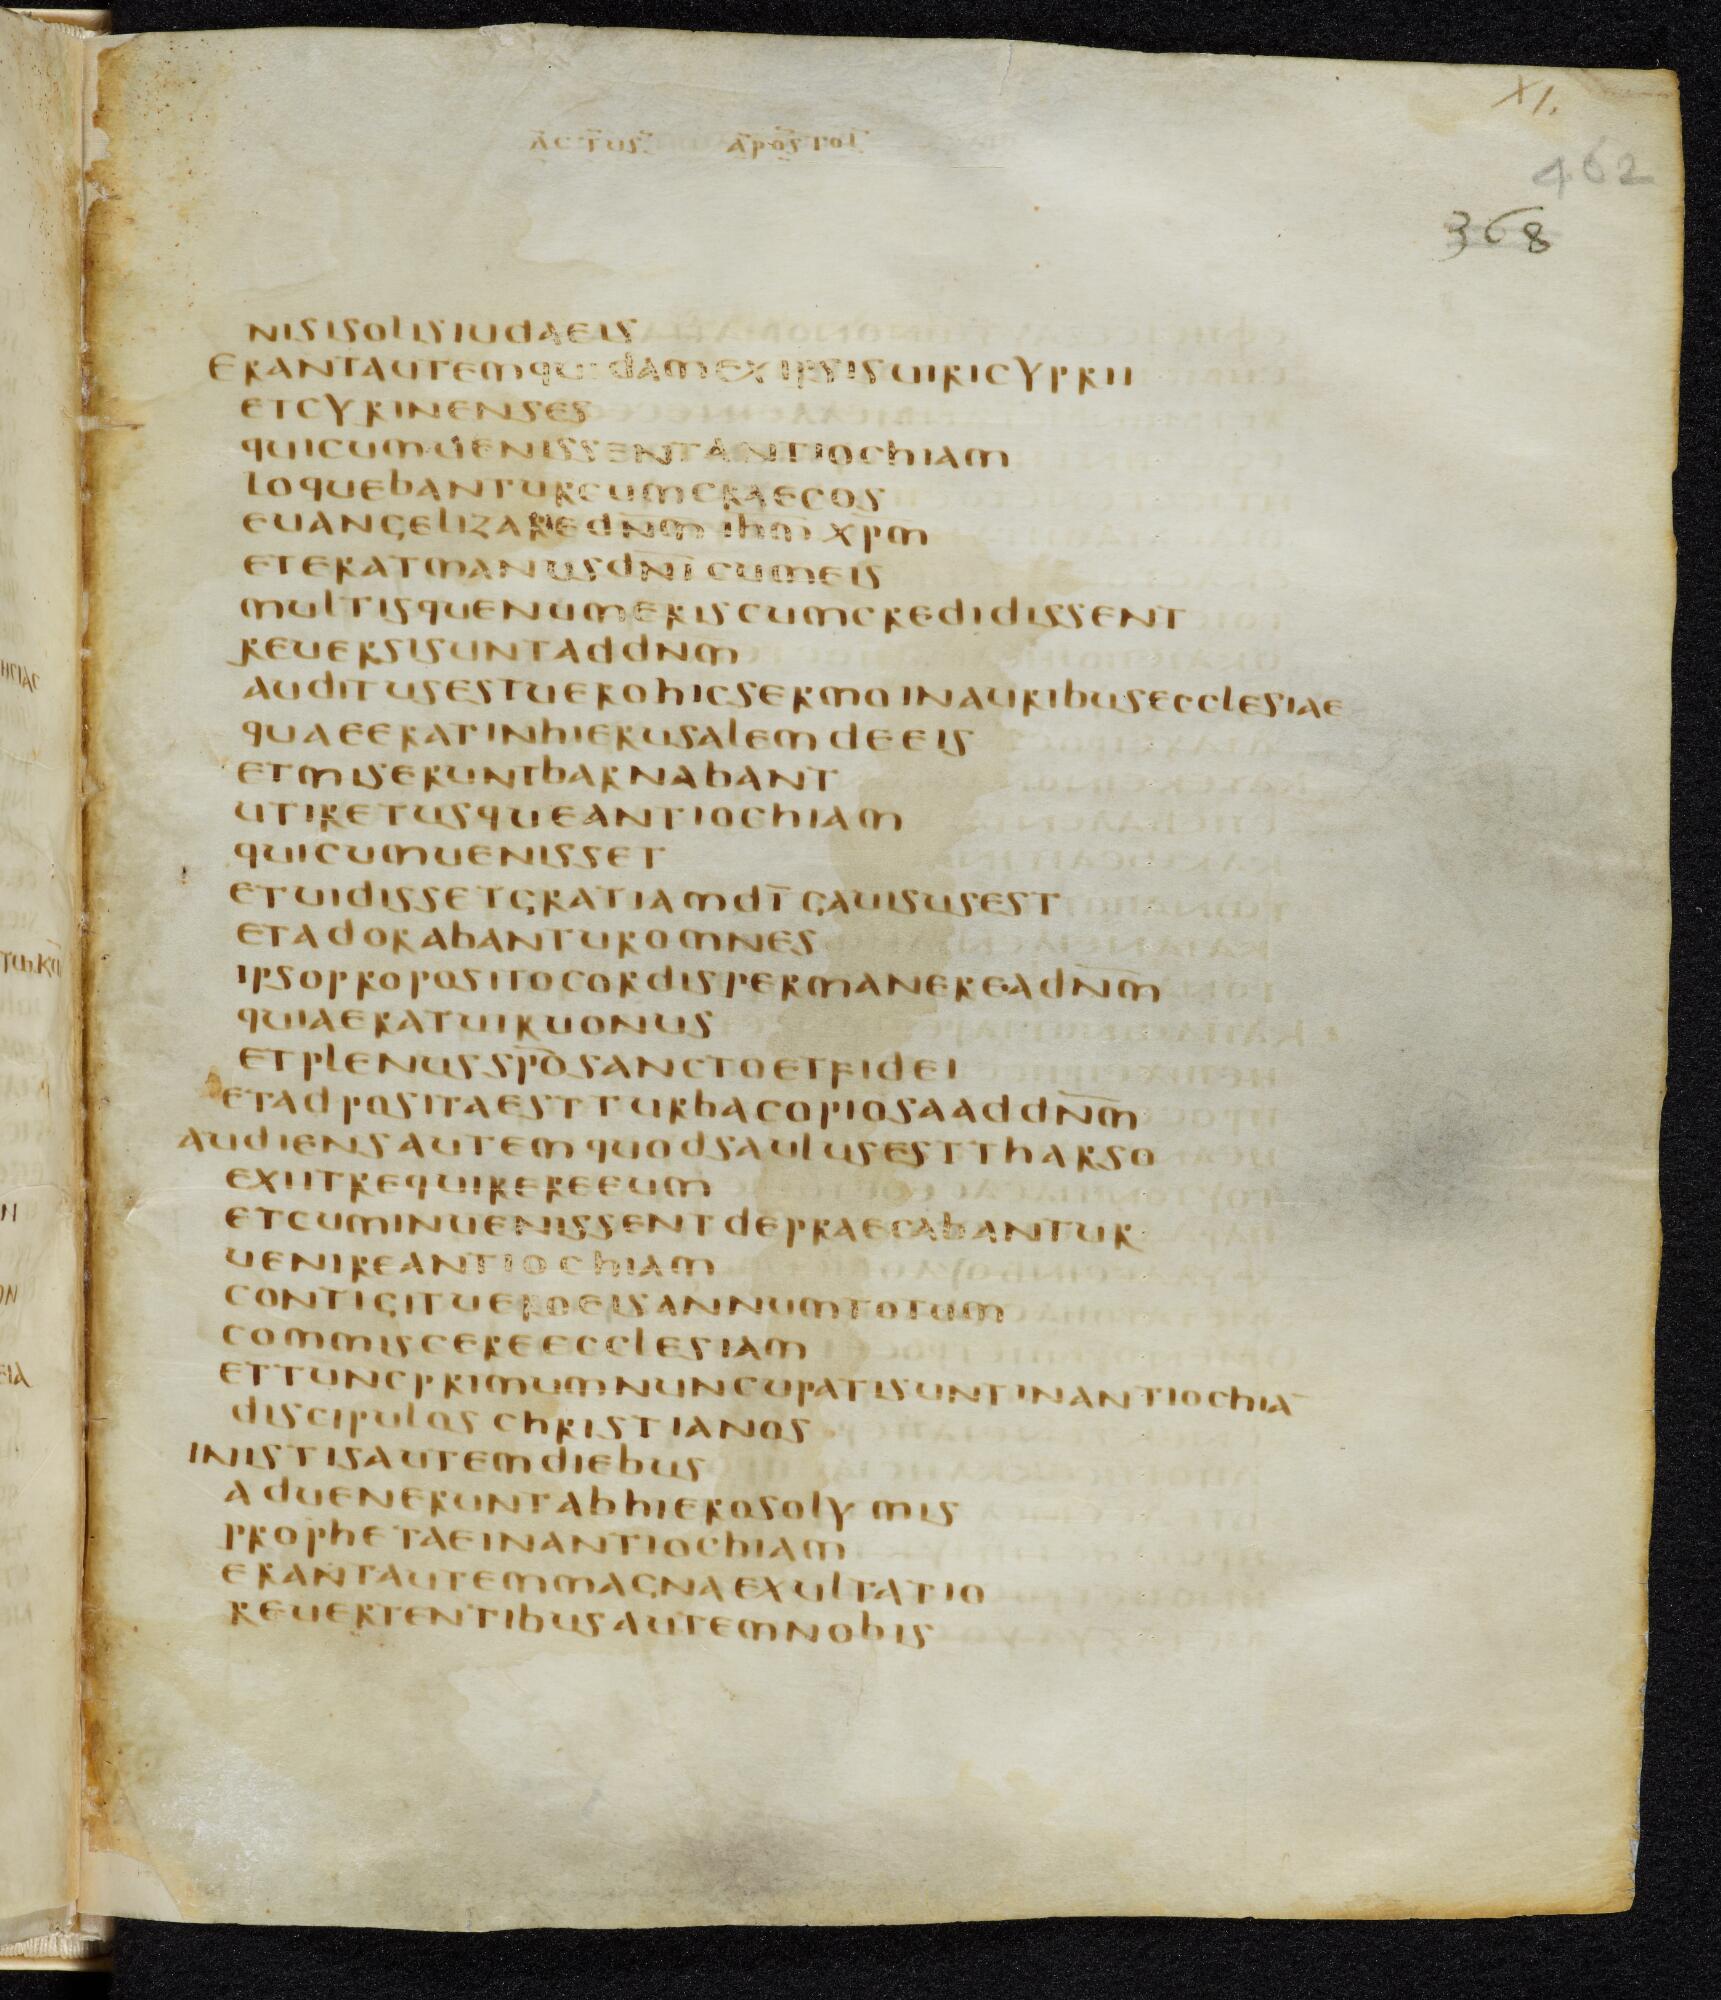 XI.
ACTUS APOSTOL
462
368
NISISOLISIUDAEIS
ERANTAUTEMQUIDAMEXIPSISUIRICYPRII
ETCYRINENSES
QUICUMUENISSENTANTIOCHIAM
LOQUEBANTURCUMCRAECOS
EUANGELIZAREDN̅M̅ IH̅M̅ XP̅M
ETERATMANUSDN̅I̅CUMEIS
MULTISQUENUMERISCUMCREDIDISSENT
REUERSISUNTADDN̅M̅
AUDITUSESTUEROHICSERMOINAURIBUSECCLESIAE
QUAEERATINHIERUSALEMDEEIS
ETMISERUNTBARNABANT
UTIRETUSQUEANTIOCHIAM
QUICUMUENISSET
ETUIDISSETGRATIAMDI̅ GAUISUSEST
ETADORABANTUROMNES
IPSOPROPOSITOCORDISPERMANEREADN̅M̅
QUIAERATUIRUONUS
ETPLENUSSPO̅SANCTOETFIDEI
ETADPOSITAESTTURBACOPIOSAADDN̅M̅
AUDIENSAUTEMQUODSAULUSESTTHARSO
EXIITREQUIREREEUM
ETCUMINUENISSENTDEPRAECABANTUR
UENIREANTIOCHIAM
CONTIGITUEROEISANNUMTOTUM
COMMISCEREECCLESIAM
ETTUNCPRIMUMNUNCUPATISUNTINANTIOCHIA̅
DISCIPULOSCHRISTIANOS
INISTISAUTEMDIEBUS
ADUENERUNTABHIEROSOLYMIS
PROPHETAEINANTIOCHIAM
ERANTAUTEMMAGNAEXULTATIO
REUERTENTIBUSAUTEMNOBIS